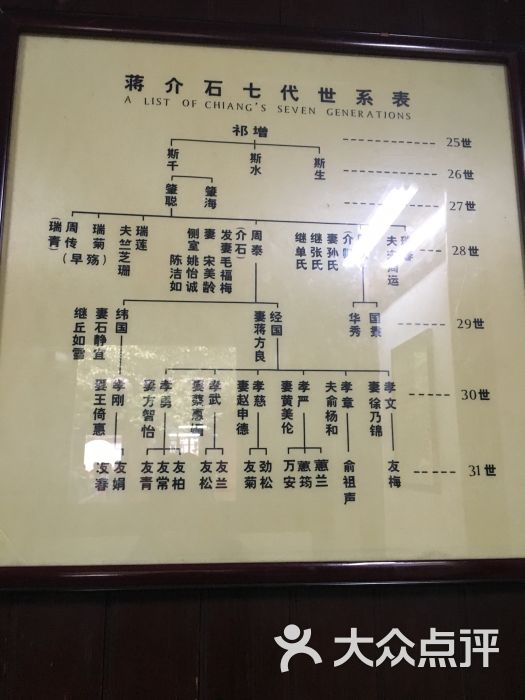 蒋介石七代世系表
A LIST OF CHIANG'S SEVEN GENERATIONS
祁增
25世
斯千
斯水
斯生
26世
肇聪
肇海
27世
(瑞青)
周传(早殇)
瑞菊
夫竺芝珊
瑞莲
侧室姚怡诚
陈洁如
妻宋美龄
发妻毛福梅
(介石)
周泰
继单氏
继张氏
妻孙氏
28世
继丘如雪
妻石静宜
纬国
妻蒋方良
经国
华秀
国
29世
妻王倚惠
孝刚
妻方智怡
孝勇
孝武
妻赵申德
孝慈
妻黄美伦
孝严
夫俞杨和
孝章
妻徐乃锦
孝文
30世
友春
友娟
友青
友常
友柏
友松
友兰
友菊
劲松
万安
蕙筠
蕙兰
俞祖声
友梅
31世
大众点评